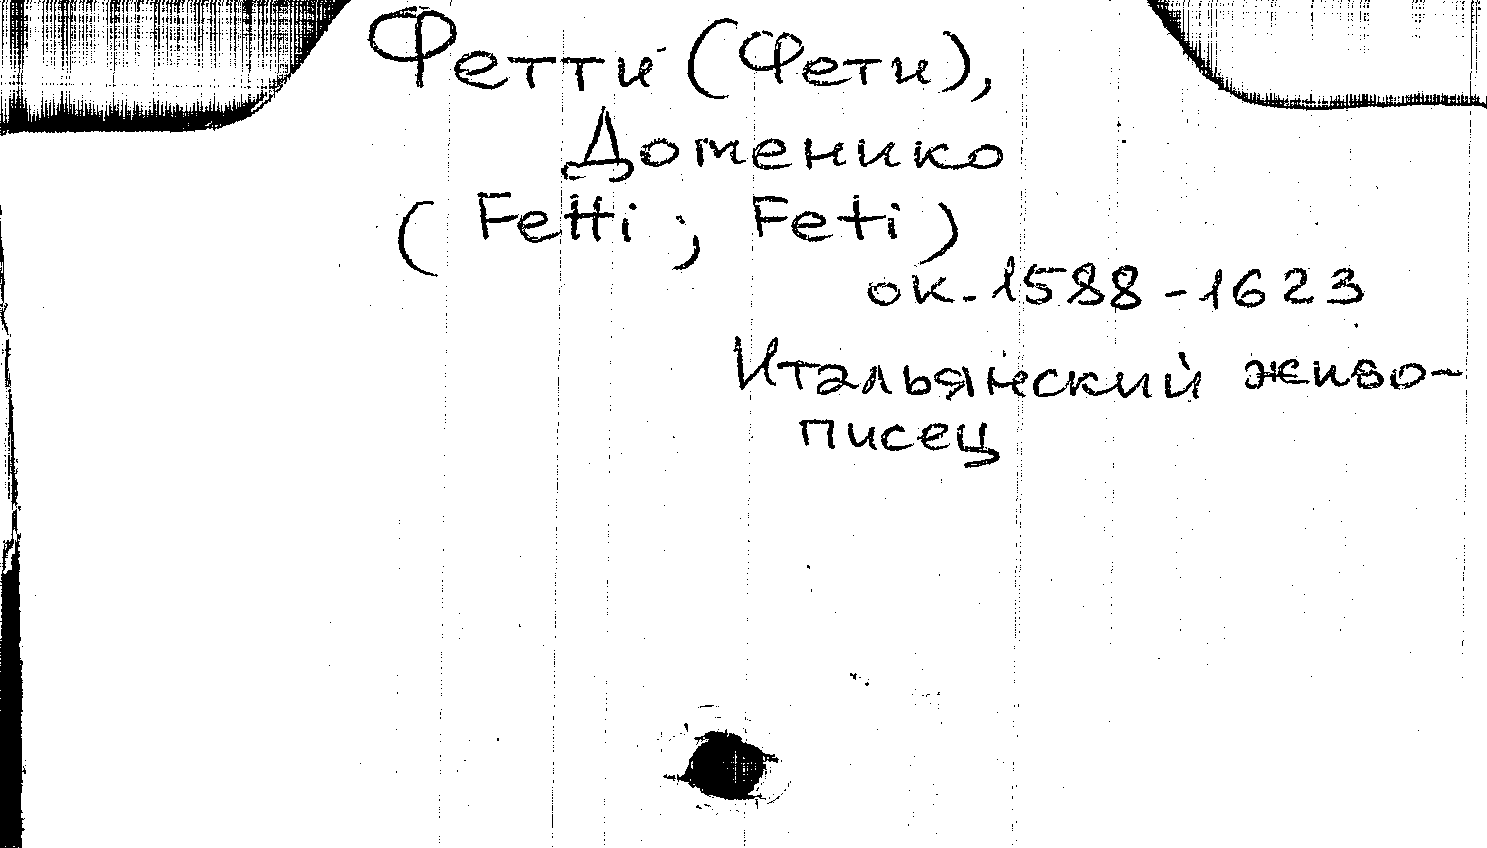 Фетти (Фети),
Доменико
(Fetti; Feti)
ок. 1588-1623
Итальянский живо-
писец